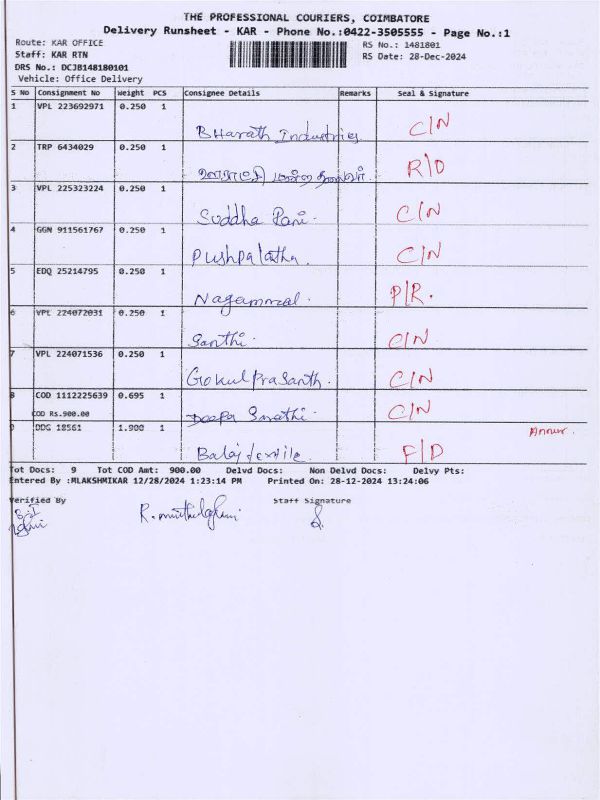 THE PROFESSIONAL COURIERS, COIMBATORE
Delivery Runsheet - KAR - Phone No.:0422-3505555 - Page No.:1
Route: KAR OFFICE
RS No.: 1481801
Staff: KAR RTN
RS Date: 28-Dec-2024
DRS No.: DCJB148180101
Vehicle: Office Delivery
S No Consignment No Weight PCS Consignee Details Remarks Seal & Signature
1 VPL 223692971 0.250 1 Bharath Industries C/N
2 TRP 6434029 0.250 1 R/D
3 VPL 225323224 0.250 1 Suddha Rani. C/N
4 GGN 911561767 0.250 1 Pushpalatha. C/N
5 EDQ 25214795 0.250 1 Nagammal. P/R.
6 VPL 224072031 0.250 1 Santhi. C/N
7 VPL 224071536 0.250 1 Gokul Prasanth. C/N
8 COD 1112225639 0.695 1 Deepa C/N
COD Rs.900.00
9 DDG 18561 1.900 1 Balaji textile. F/D Annur.
Tot Docs: 9 Tot COD Amt: 900.00 Delvd Docs: Non Delvd Docs: Delvy Pts:
Entered By :MLAKSHMIKAR 12/28/2024 1:23:14 PM Printed On: 28-12-2024 13:24:06
Verified By Staff Signature